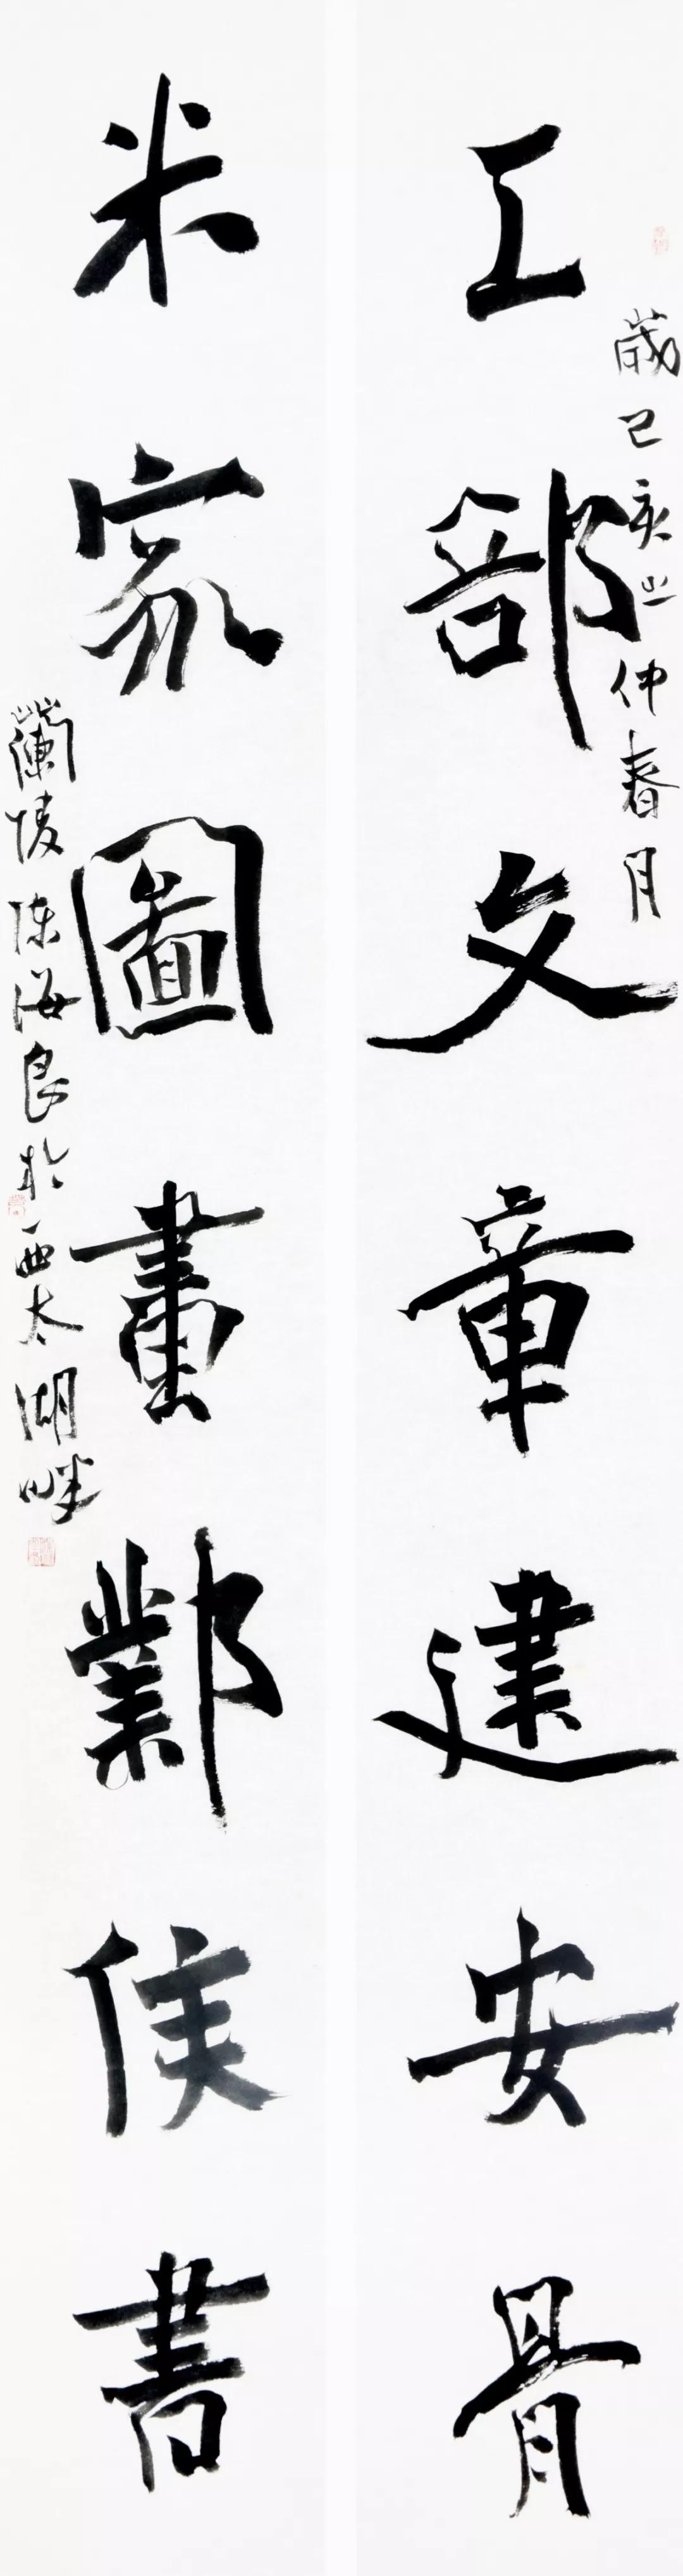 工部文章建安骨
歲己亥之仲春月
米家圖畫鄴侯書
蘭陵陈海良於西太湖畔